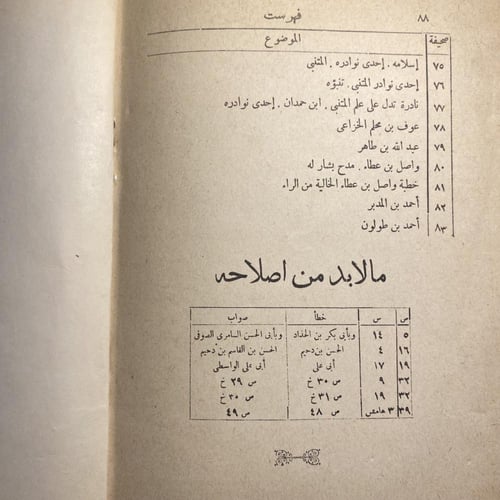 ٨٨ فهرست
صحيفة الموضوع
٧٥ إسلامه . إحدى نوادره . المتنبى
٧٦ إحدى نوادر المتنبى . تنبؤه
٧٧ نادرة تدل على علم المتنبى . ابن حمدان . إحدى نوادره
٧٨ عوف بن محلم الخزاعى
٧٩ عبد الله بن طاهر
٨٠ واصل بن عطاء . مدح بشار له
٨١ خطبة واصل بن عطاء الخالية من الراء
٨٢ أحمد بن المدبر
٨٣ أحمد بن طولون
مالابد من اصلاحه
ص س خطأ صواب
٥ ١٤ وبأبى بكر بن الحداد وبأبى الحسن السامرى الصوفى
١٦ ٤ الحسن بن دحيم الحسن بن القاسم بن دحيم
١٩ ١٧ أبى على أبى على الواسطى
٣٢ ٩ ص ٣٠ خ ص ٢٩ خ
٣٢ ١٩ ص ٣١ خ ص ٣٠ خ
٣٩ ٣ هامش ص ٤٨ ص ٤٩